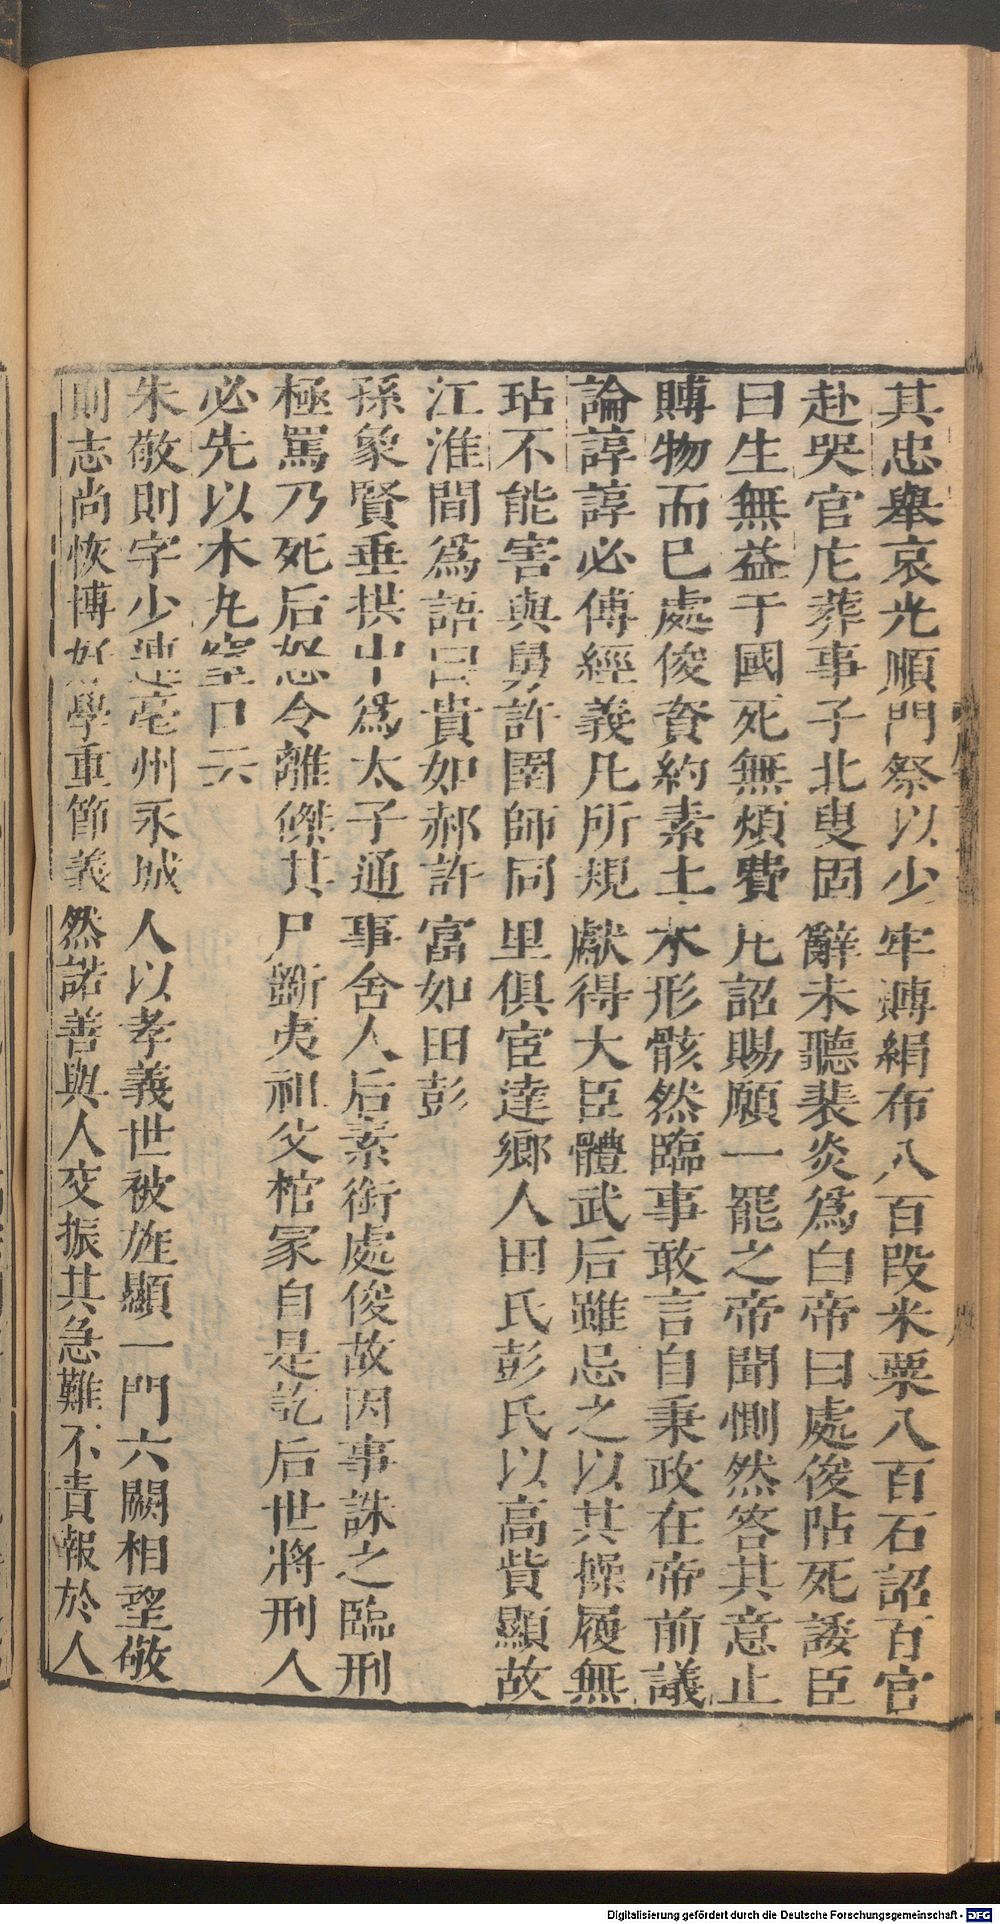 其忠舉哀光順門祭以少牢賻絹布八百段米粟八百石詔百官
赴哭官庀葬事子北叟固辭未聽裴炎爲白帝曰處俊阽死諉臣
曰生無益于國死無煩費凡詔賜願一罷之帝聞惻然答其意止
賻物而已處俊資約素土木形骸然臨事敢言自秉政在帝前議
論諄諄必傅經義凡所規獻得大臣體武后雖忌之以其操履無
玷不能害與舅許圉師同里俱宦達鄉人田氏彭氏以高貲顯故
江淮間爲語曰貴如郝許富如田彭
孫象賢垂拱中爲太子通事舍人后素銜處俊故因事誅之臨刑
極罵乃死后怒令離傑其尸斲夷祖父棺冢自是訖后世將刑人
必先以木丸窒口云
朱敬則字少連亳州永城人以孝義世被旌顯一門六闕相望敬
則志尚恢博好學重節義然諾善與人交振其急難不責報於人
Digitalisierung gefördert durch die Deutsche Forschungsgemeinschaft - DFG